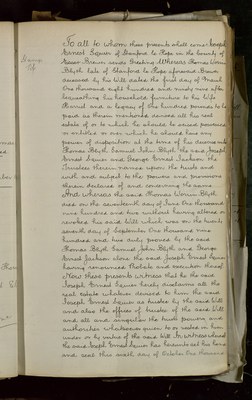 To all to whom these presents shall come Joseph
Ernest Squier of Stanford le Hope in the County of
Essex Brewer sends Greeting Whereas Thomas Worrin
Blyth late of Stanford le Hope aforesaid Brewer
deceased by his Will dated the first day of
One thousand eight hundred and ninety nine after
bequeathing his household furniture to his Wife
and a legacy of five hundred pounds to be
paid as therein mentioned devised all the real
estate of or to which he should be seised possessed
or entitled or over which he should have any
power of disposition at the time of his decease unto
Thomas Blyth Samuel John Blyth the said Joseph
Ernest Squier and George Ernest Jackson the
Trustees therein named upon the trusts and
with and subject to the powers and provisions
therein declared of and concerning the same
And whereas the said Thomas Worrin Blyth
died on the seventeenth day of June One thousand
nine hundred and two without having altered or
revoked his said Will which was on the twenty
seventh day of September One thousand nine
hundred and two duly proved by the said
Thomas Blyth Samuel John Blyth and George
Ernest Jackson alone the said Joseph Ernest Squier
having renounced Probate and execution thereof
Now these presents witness that he the said
Joseph Ernest Squier hereby disclaims all the
real estate whatever devised to him the said
Joseph Ernest Squier as trustee by the said Will
and also the office of trustee of the said Will
and all and singular the trusts powers and
authorities whatsoever given to or vested in him
under or by virtue of the said Will In witness whereof
the said Joseph Ernest Squier has hereunto set his hand
and seal this sixth day of October One thousand